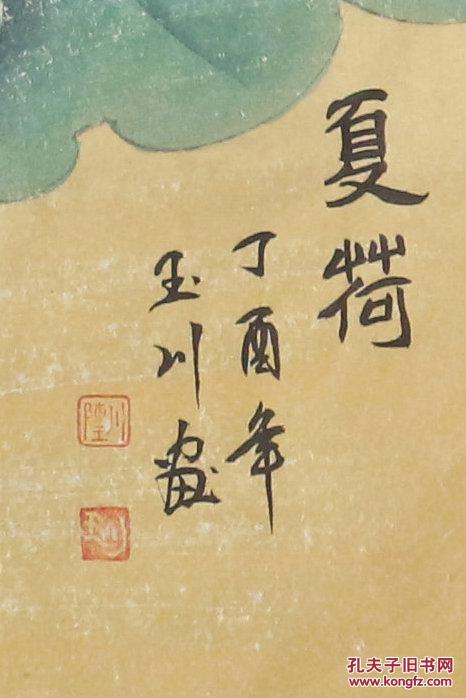 夏荷
丁酉年
玉川画
孔夫子旧书网
www.kongfz.com